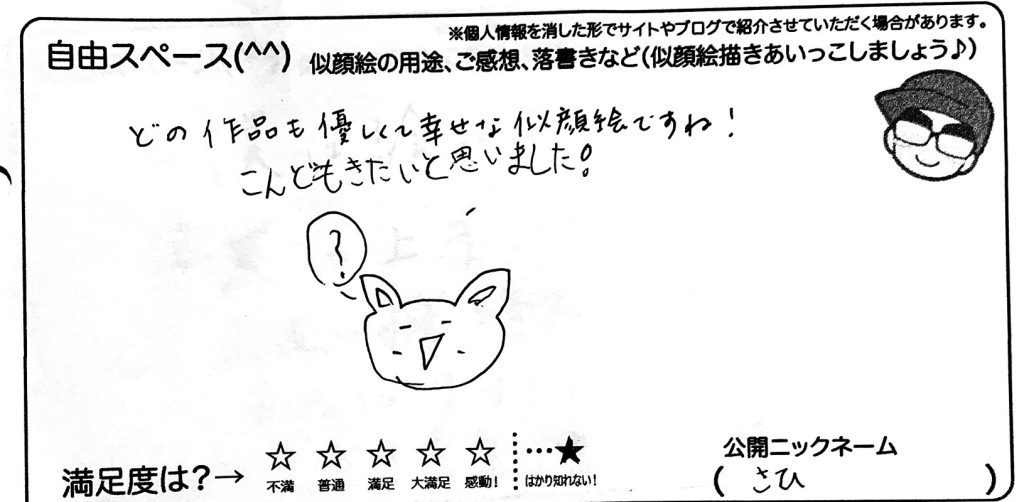 ※個人情報を消した形でサイトやブログで紹介させていただく場合があります。
自由スペース(^^) 似顔絵の用途、ご感想、落書きなど(似顔絵描きあいっこしましょう♪)
どの作品も優しくて幸せな似顔絵ですね!
こんどもきたいと思いました。
?
満足度は?→ ☆ ☆ ☆ ☆ ☆ …★
不満 普通 満足 大満足 感動! はかり知れない!
公開ニックネーム
( さひ )